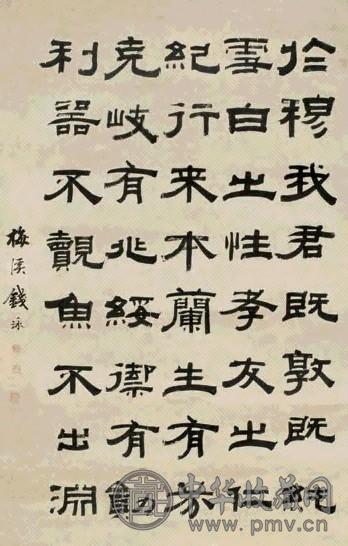 於穆我君既敦既純
雪白之性孝友之仁
紀行来本蘭生有芬
克岐有兆綏禦有勛
利器不覿魚不出淵
梅溪錢泳
中华收藏网
www.pmv.cn